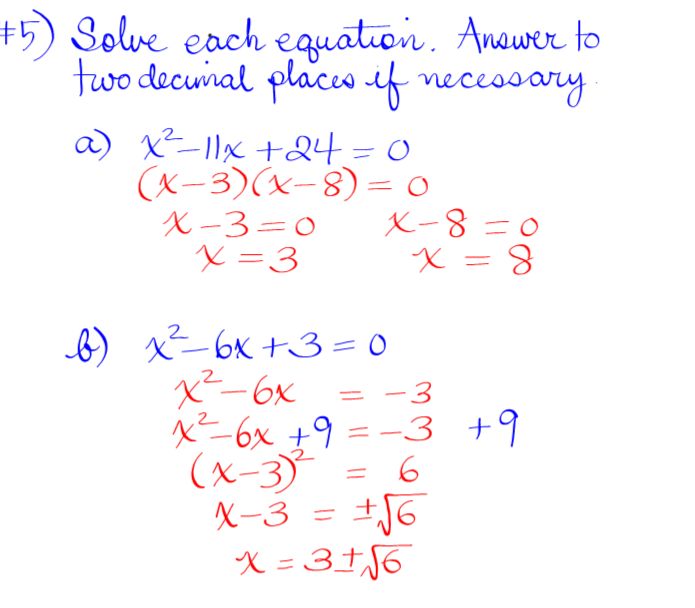 #5) Solve each equation. Answer to
two decimal places if necessary.
a) x²-11x+24=0
(x-3)(x-8)=0
x-3=0 x-8=0
x=3 x=8
b) x²-6x+3=0
x²-6x = -3
x²-6x+9=-3 +9
(x-3)² = 6
x-3 = ±√6
x=3±√6